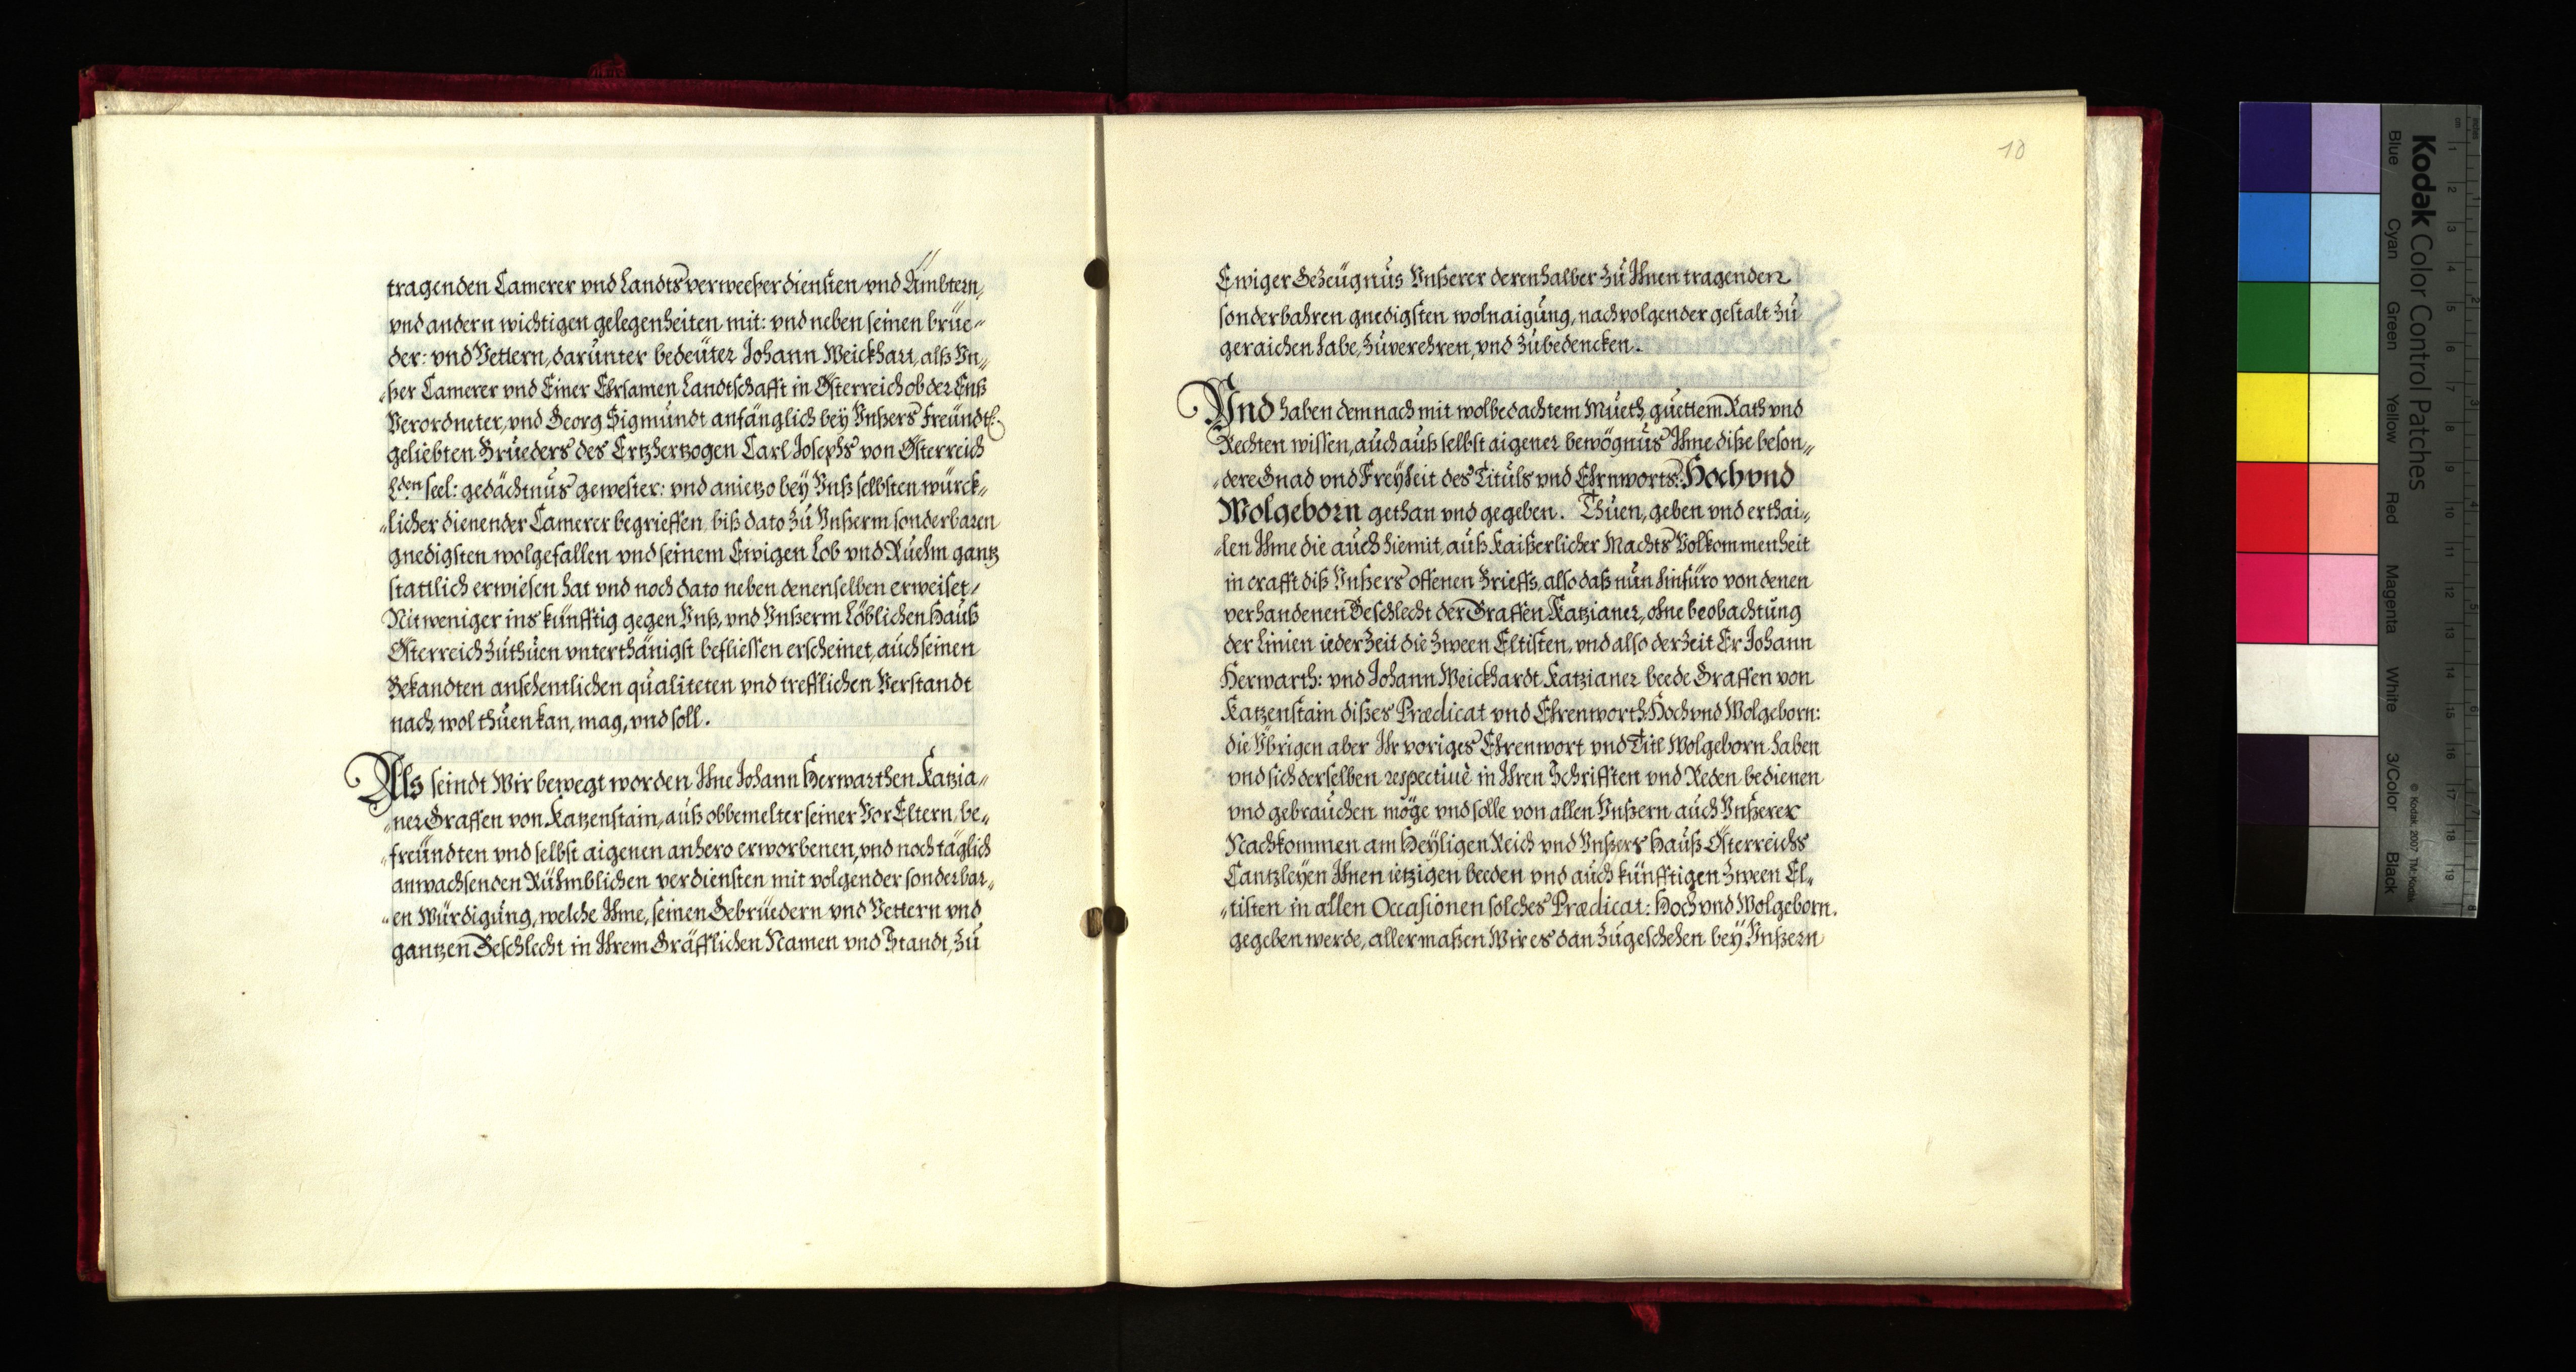 tragenden Camerer vnd Landtsverweeßer diensten vnd Ämbtern,
vnd andern wichtigen gelegenheiten mit: vnd neben seinen brüe„
der: vnd Vettern, darunter bedeüter Johann Weickhart, alß Vn„
„ßer Camerer vnd Einer Ehrsamen Landtschafft in Österreich ob der Enß
Verordneter, vnd Georg Sigmundt anfänglich bey Vnßers Freündtl:
geliebten Brueders des Ertzhertzogen Carl Josephs von Österreich
Lden seel: gedächtnus gewester: vnd anietzo bey Vnß selbsten würck„
„licher dienender Camerer begrieffen, biß dato zu Vnßerm sonderbaren
gnedigsten wolgefallen vnd seinem Ewigen Lob vnd Ruehm gantz
stattlich erwiesen hat vnd noch dato neben denenselben erweiset,
Nit weniger ins künfftig gegen Vnß, vnd Vnßerm Löblichen Hauß
Österreich zuthuen vnterthänigst befliessen erscheinet, auch seinen
Bekandten ansehentlichen qualiteten vnd trefflichen Verstandt
nach, wol thuen kan, mag, vnd soll.
Als seindt Wir bewegt worden Ihne Johann Herwarthen Katzia„
„ner Graffen von Katzenstain, auß obbemelter seiner Vor Eltern, be„
„freündten vnd selbst aigenen anhero erworbenen, vnd noch täglich
anwachsenden Rühmblichen verdiensten mit volgender sonderbar„
„en Würdigung, welche Ihme, seinen Gebrüedern vnd Vettern vnd
gantzen Geschlecht in Ihrem Gräfflichen Namen vnd Standt, zu
10
Ewiger Gezeügnus Vnßerer derenhalber zu Ihnen tragenden
sonderbahren gnedigsten wolnaigung, nachvolgender gestalt zu
geraichen habe, zuverehren, vnd zubedencken.
Vnd haben demnach mit wolbedachtem Mueth, guettem Rath vnd
Rechten wissen, auch auß selbst aigener bewögnus Ihme diße beson„
„dere Gnad vnd Freyheit des Tituls vnd Ehrnworts: Hoch vnd
Wolgeborn gethan vnd gegeben. Thuen, geben vnd erthai„
„len Ihme die auch hiemit, auß Kaißerlicher Machts Volkommenheit
in crafft diß Vnßers offenen Brieffs, also daß nun hinfüro von denen
verhandenen Geschlecht der Graffen Katzianer, ohne beobachtung
der Linien ieder Zeit die Zween Eltisten, vnd also der Zeit Er Johann
Herwarth: vnd Johann Weickhardt Katzianer beede Graffen von
Katzenstain dißes Prædicat vnd Ehrenworth Hoch vnd Wolgeborn:
die Vbrigen aber Ihr voriges Ehrenwort vnd Titl Wolgeborn haben
vnd sich derselben respectiuè in Ihren Schrifften vnd Reden bedienen
vnd gebrauchen möge vnd solle von allen Vnßern auch Vnßerer
Nachkommen am Heyligen Reich vnd Vnßers Hauß Österreichs
Cantzleyen Ihnen ietzigen beeden vnd auch künfftigen Zween El„
„tisten in allen Occasionen solches Prædicat: Hoch vnd Wolgeborn.
gegeben werde, allermaßen Wir es dan zugeschehen bey Vnßern
Kodak Color Control Patches
Blue Cyan Green Yellow Red Magenta White 3/Color Black
© Kodak, 2007 TM: Kodak